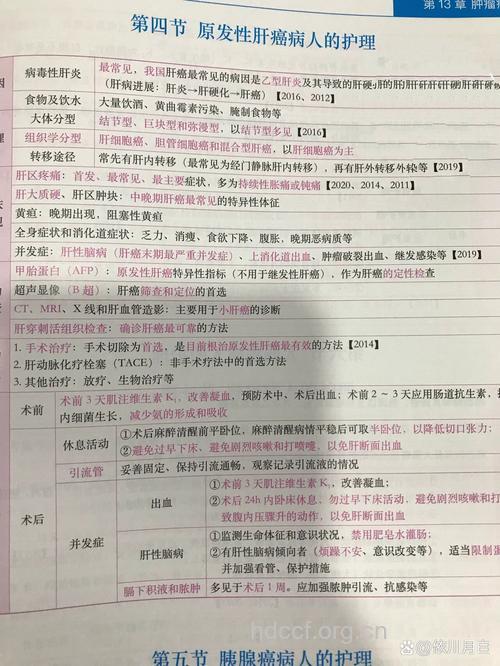 第 13 章 肿瘤
第四节 原发性肝癌病人的护理
因
病毒性肝炎 最常见，我国肝癌最常见的病因是乙型肝炎及其导致的肝硬
（肝病进展：肝炎→肝硬化→肝癌）【2016、2012】
食物及饮水 大量饮酒、黄曲霉素污染、腌制食物等
大体分型 结节型、巨块型和弥漫型，以结节型多见【2016】
理 组织学分型 肝细胞癌、胆管细胞癌和混合型肝癌，以肝细胞癌为主
转移途径 常先有肝内转移（最常见为经门静脉肝内转移），再有肝外转移等【2019】
肝区疼痛：首发、最常见、最主要症状，多为持续性胀痛或钝痛【2020、2014、2011】
肝大质硬、肝区肿块：中晚期肝癌最常见的特异性体征
黄疸：晚期出现，阻塞性黄疸
全身症状和消化道症状：乏力、消瘦、食欲下降、腹胀，晚期恶病质等
并发症：肝性脑病（肝癌末期最严重并发症）、上消化道出血、肿瘤破裂出血、继发感染等【2019】
甲胎蛋白（AFP）：原发性肝癌特异性指标（不用于继发性肝癌），作为肝癌的定性检查
超声显像（B 超）：肝癌筛查和定位的首选
CT、MRI、X 线和肝血管造影：主要用于小肝癌的诊断
肝穿刺活组织检查：确诊肝癌最可靠的方法
1. 手术治疗：手术切除为首选，是目前根治原发性肝癌最有效的方法【2014】
2. 肝动脉化疗栓塞（TACE）：非手术疗法中的首选方法
3. 其他治疗：放疗、生物治疗等
术前 术前 3 天肌注维生素 K₁，改善凝血，预防术中、术后出血；术前 2 ~ 3 天应用肠道抗生素，
内细菌生长，减少氨的形成和吸收
术后
休息活动 ①术后麻醉清醒前平卧位，麻醉清醒病情平稳后可取半卧位，以降低切口张力；
②避免过早下床、避免剧烈咳嗽和打喷嚏，以免肝断面出血
引流管 妥善固定、保持引流通畅，观察记录引流液的情况
并发症
出血 ①术前 3 天肌注维生素 K₁，改善凝血；
②术后 24h 内卧床休息，勿过早下床活动，避免剧烈咳嗽和打
致腹内压骤升的动作，以免肝断面出血
肝性脑病 ①监测生命体征和意识状况，禁用肥皂水灌肠；
②有肝性脑病倾向者（烦躁不安、意识改变等），适当限制蛋
并加强看管、保护措施
膈下积液和脓肿 多见于术后 1 周。应加强脓肿引流、抗感染等
hdccf.org.cn
第五节 胰腺癌病人的护理